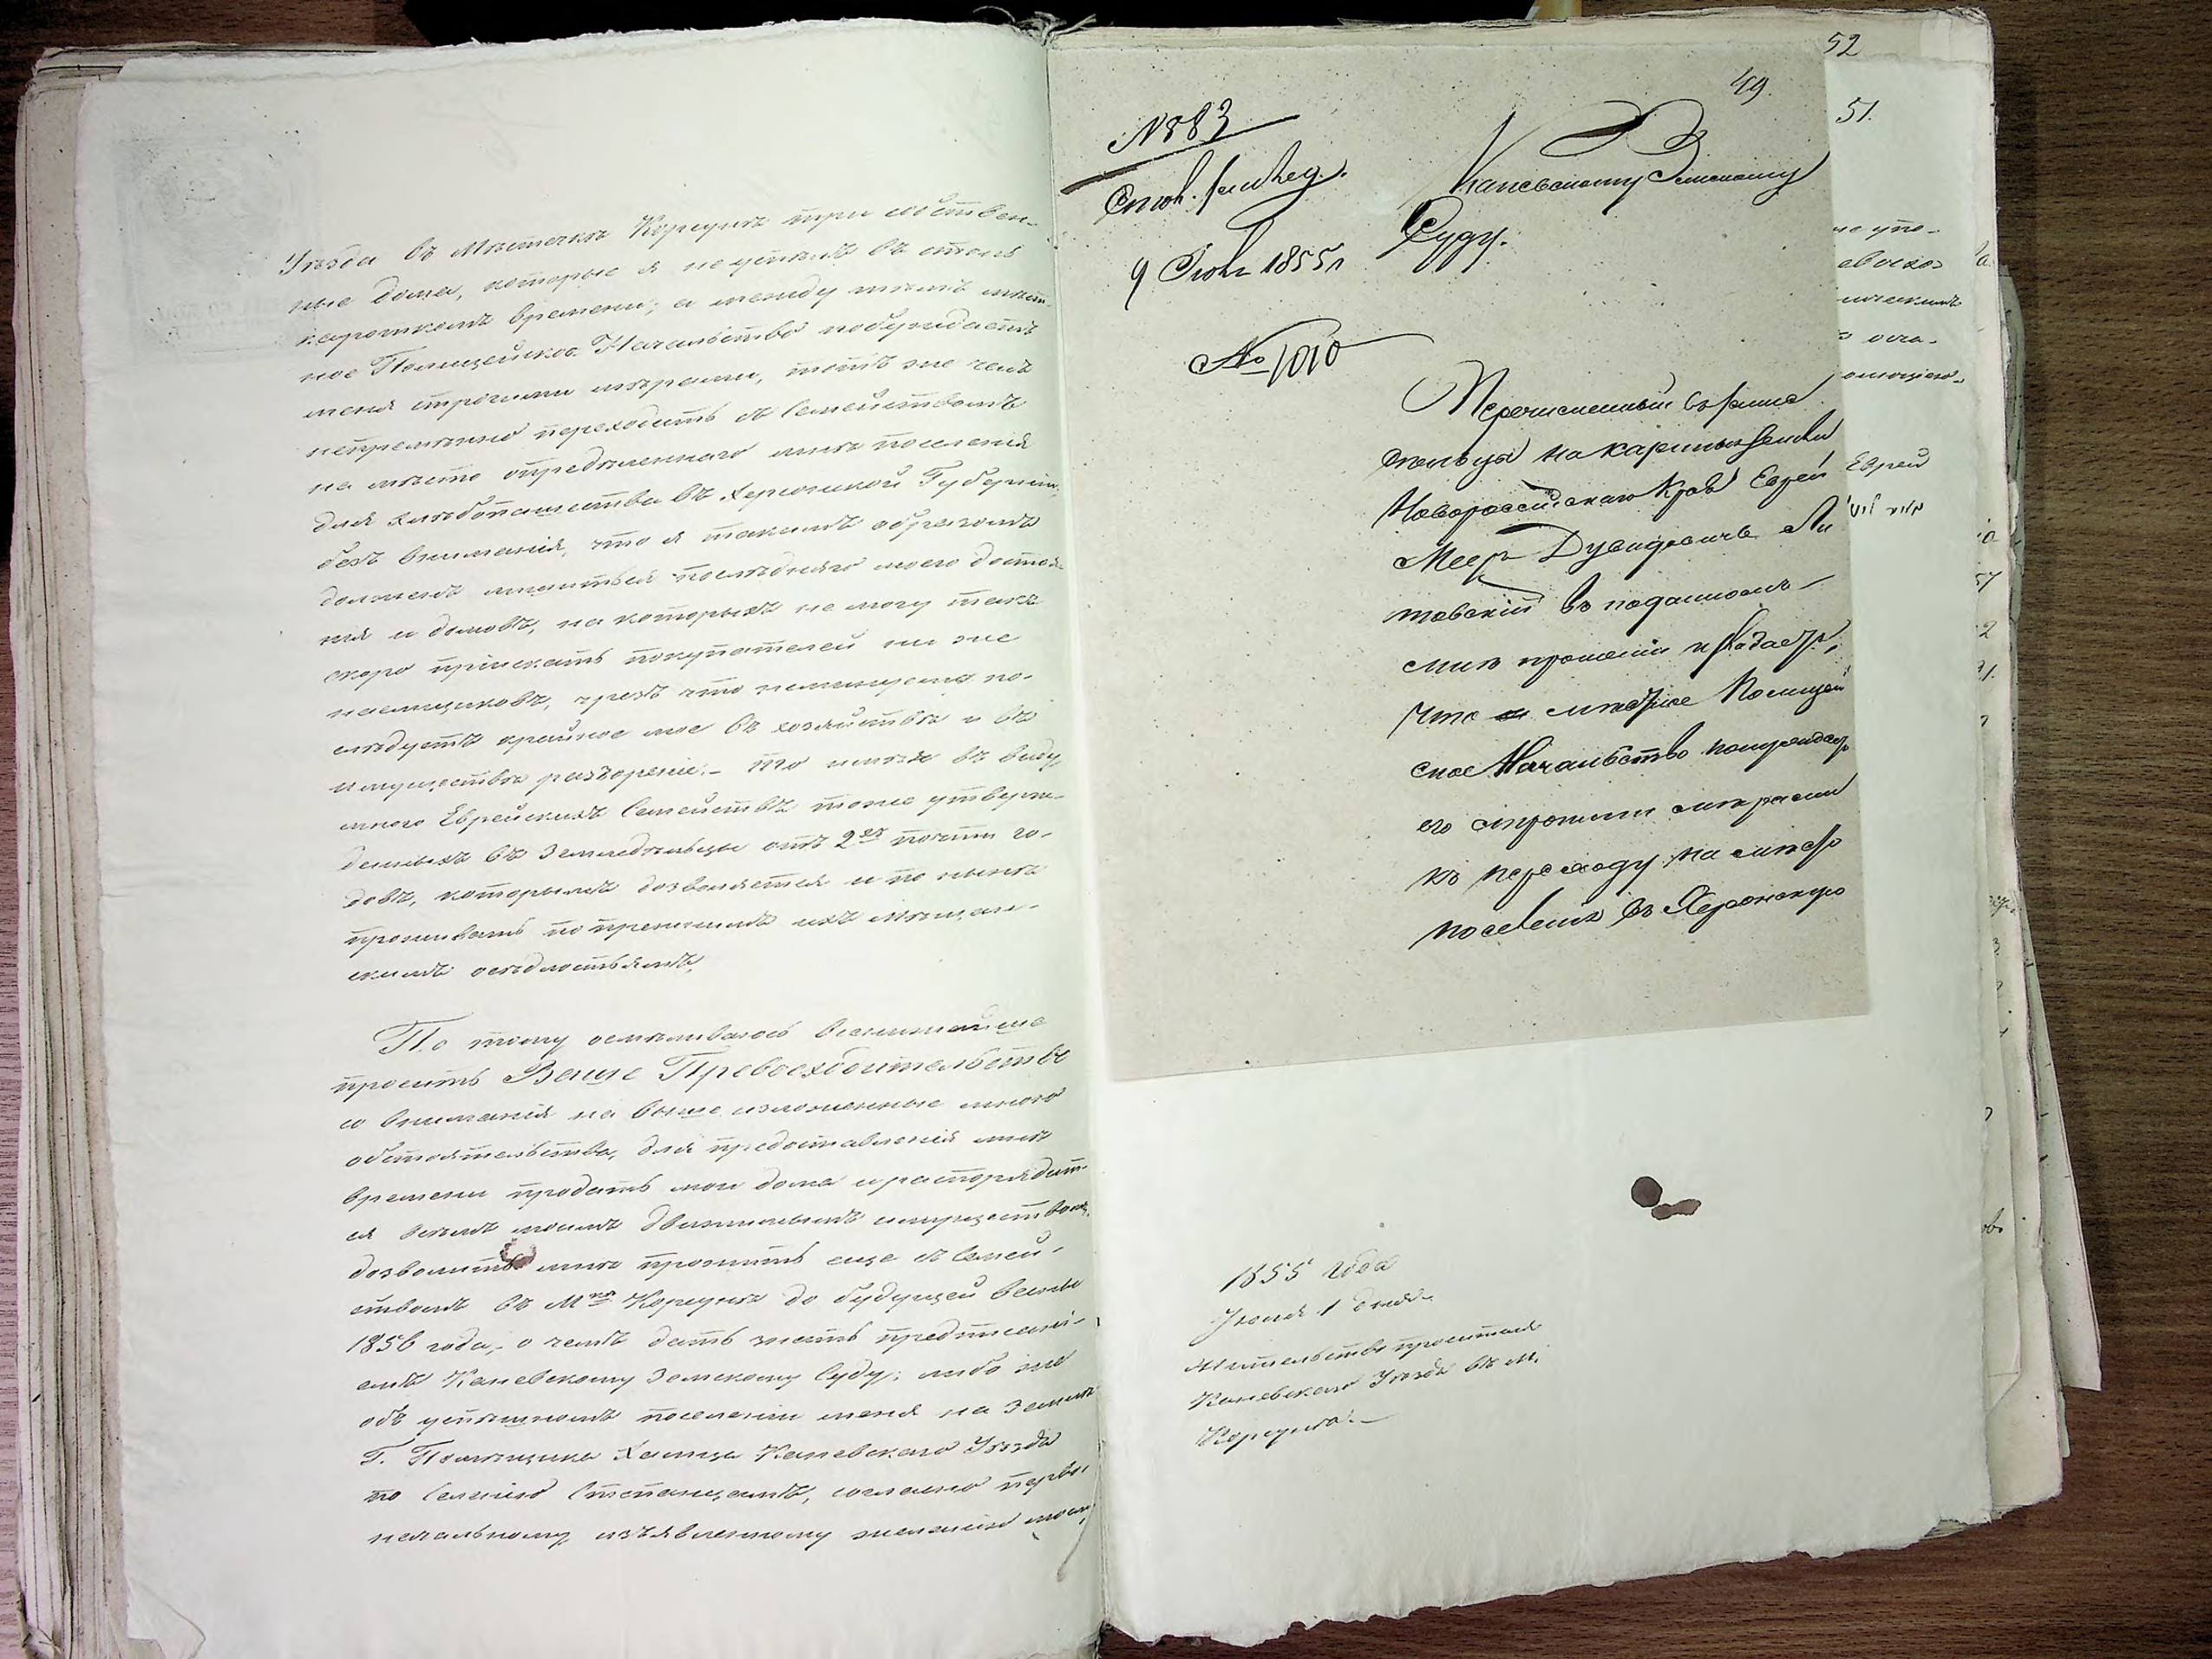 Уѣзда въ Мѣстечкѣ Корсунѣ три собствен-
ные дома, которые я не успѣлъ въ столь
короткомъ времени; а между тѣмъ мѣст-
ное Полицейское Начальство побуждаетъ
меня строгими мѣрами, тотъ же часъ
непремѣнно переходить съ Семействомъ
на мѣсто опредѣленнаго мнѣ поселенія
для хлѣбопашества въ Херсонской Губерніи,
безъ вниманія, что я такимъ образомъ
долженъ лишиться послѣдняго моего достоя-
нія и домовъ, на которыхъ не могу такъ
скоро пріискать покупателей ни же
наемщиковъ, чрезъ что неминуемо по-
слѣдуетъ крайное мое въ хозяйствѣ и въ
имуществѣ разореніе.- то имѣя въ виду
много Еврейскихъ Семействъ тоже утверж-
денныхъ въ Земледѣльцы отъ 2хъ почти го-
довъ, которымъ дозволяется и по нынѣ
проживать по прежнимъ ихъ мѣщан-
скимъ осѣдлостьямъ,
По тому осмѣливаюсь всенижайше
просить Ваше Превосходительство
о вниманія на выше изложенные мною
обстоятельства, для предоставленія мнѣ
времени продать мои дома и распорядит-
ся всѣмъ моимъ движимымъ имуществомъ,
дозволить мнѣ прожить еще съ Семей-
ствомъ въ Мкѣ Корсунѣ до будущей весны
1856 года,- о чемъ дать знать предписані-
емъ Каневскому Земскому Суду; либо же
объ успѣшномъ поселеніи меня на Землѣ
Г. Помѣщика Каневскаго Уѣзда
по Селенію Стетанцамъ, согласно перво-
начальному изъявленному желанію моему,
52
49.
51.
№ 883
9 Іюня 1855 г
№ 1010
Каневскому Земскому
Суду.
Перечисленный въ земле
дельцы на казенныя земли
Новороссійскаго Края Еврей
Меер Дувидовичъ Ли
товскій въ поданномъ
мнѣ прошеніи излагаетъ,
что мѣстное Полицей
ское Начальство понуждаетъ
его строгими мѣрами
къ переходу на мѣсто
поселенія въ Херсонскую
Еврей
1855 года
Іюня 1 дня.
Жительство просителя
Каневскаго Уѣзда въ М.
Корсунѣ.